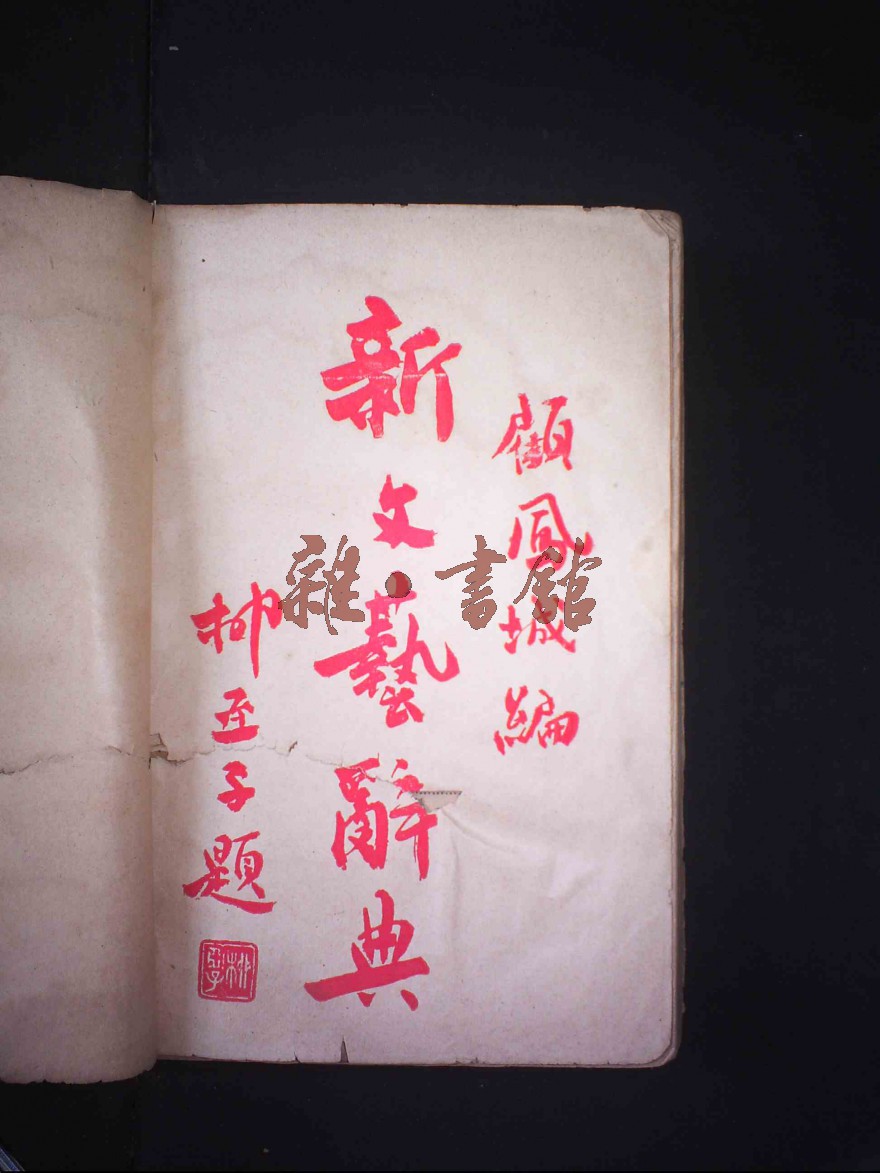 顧鳳城編
新文藝辭典
柳亞子題
雜·書館